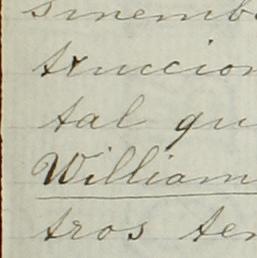 sinemb
truccion
tal qu
William
tros ten